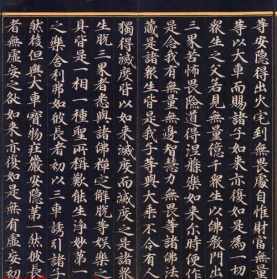 等安隱得出火宅到無畏處自惟財富無量
等以大車而賜諸子如來亦復如是為一切
眾生之父若見無量億千眾生以佛教門出
三界苦怖畏險道得涅槃樂如來尒時便作
是念我有無量無邊智慧力無畏等諸佛法
藏是諸眾生皆是我子等與大乘不令有人
獨得滅度皆以如來滅度而滅度之是諸眾
生脫三界者悉與諸佛禪定解脫等娛樂之
具皆是一相一種聖所稱歎能生淨妙第一
之樂舍利弗如彼長者初以三車誘引諸子
然後但與大車寶物莊嚴安隱第一然彼長
者無虛妄之咎如來亦復如是無有虛妄初